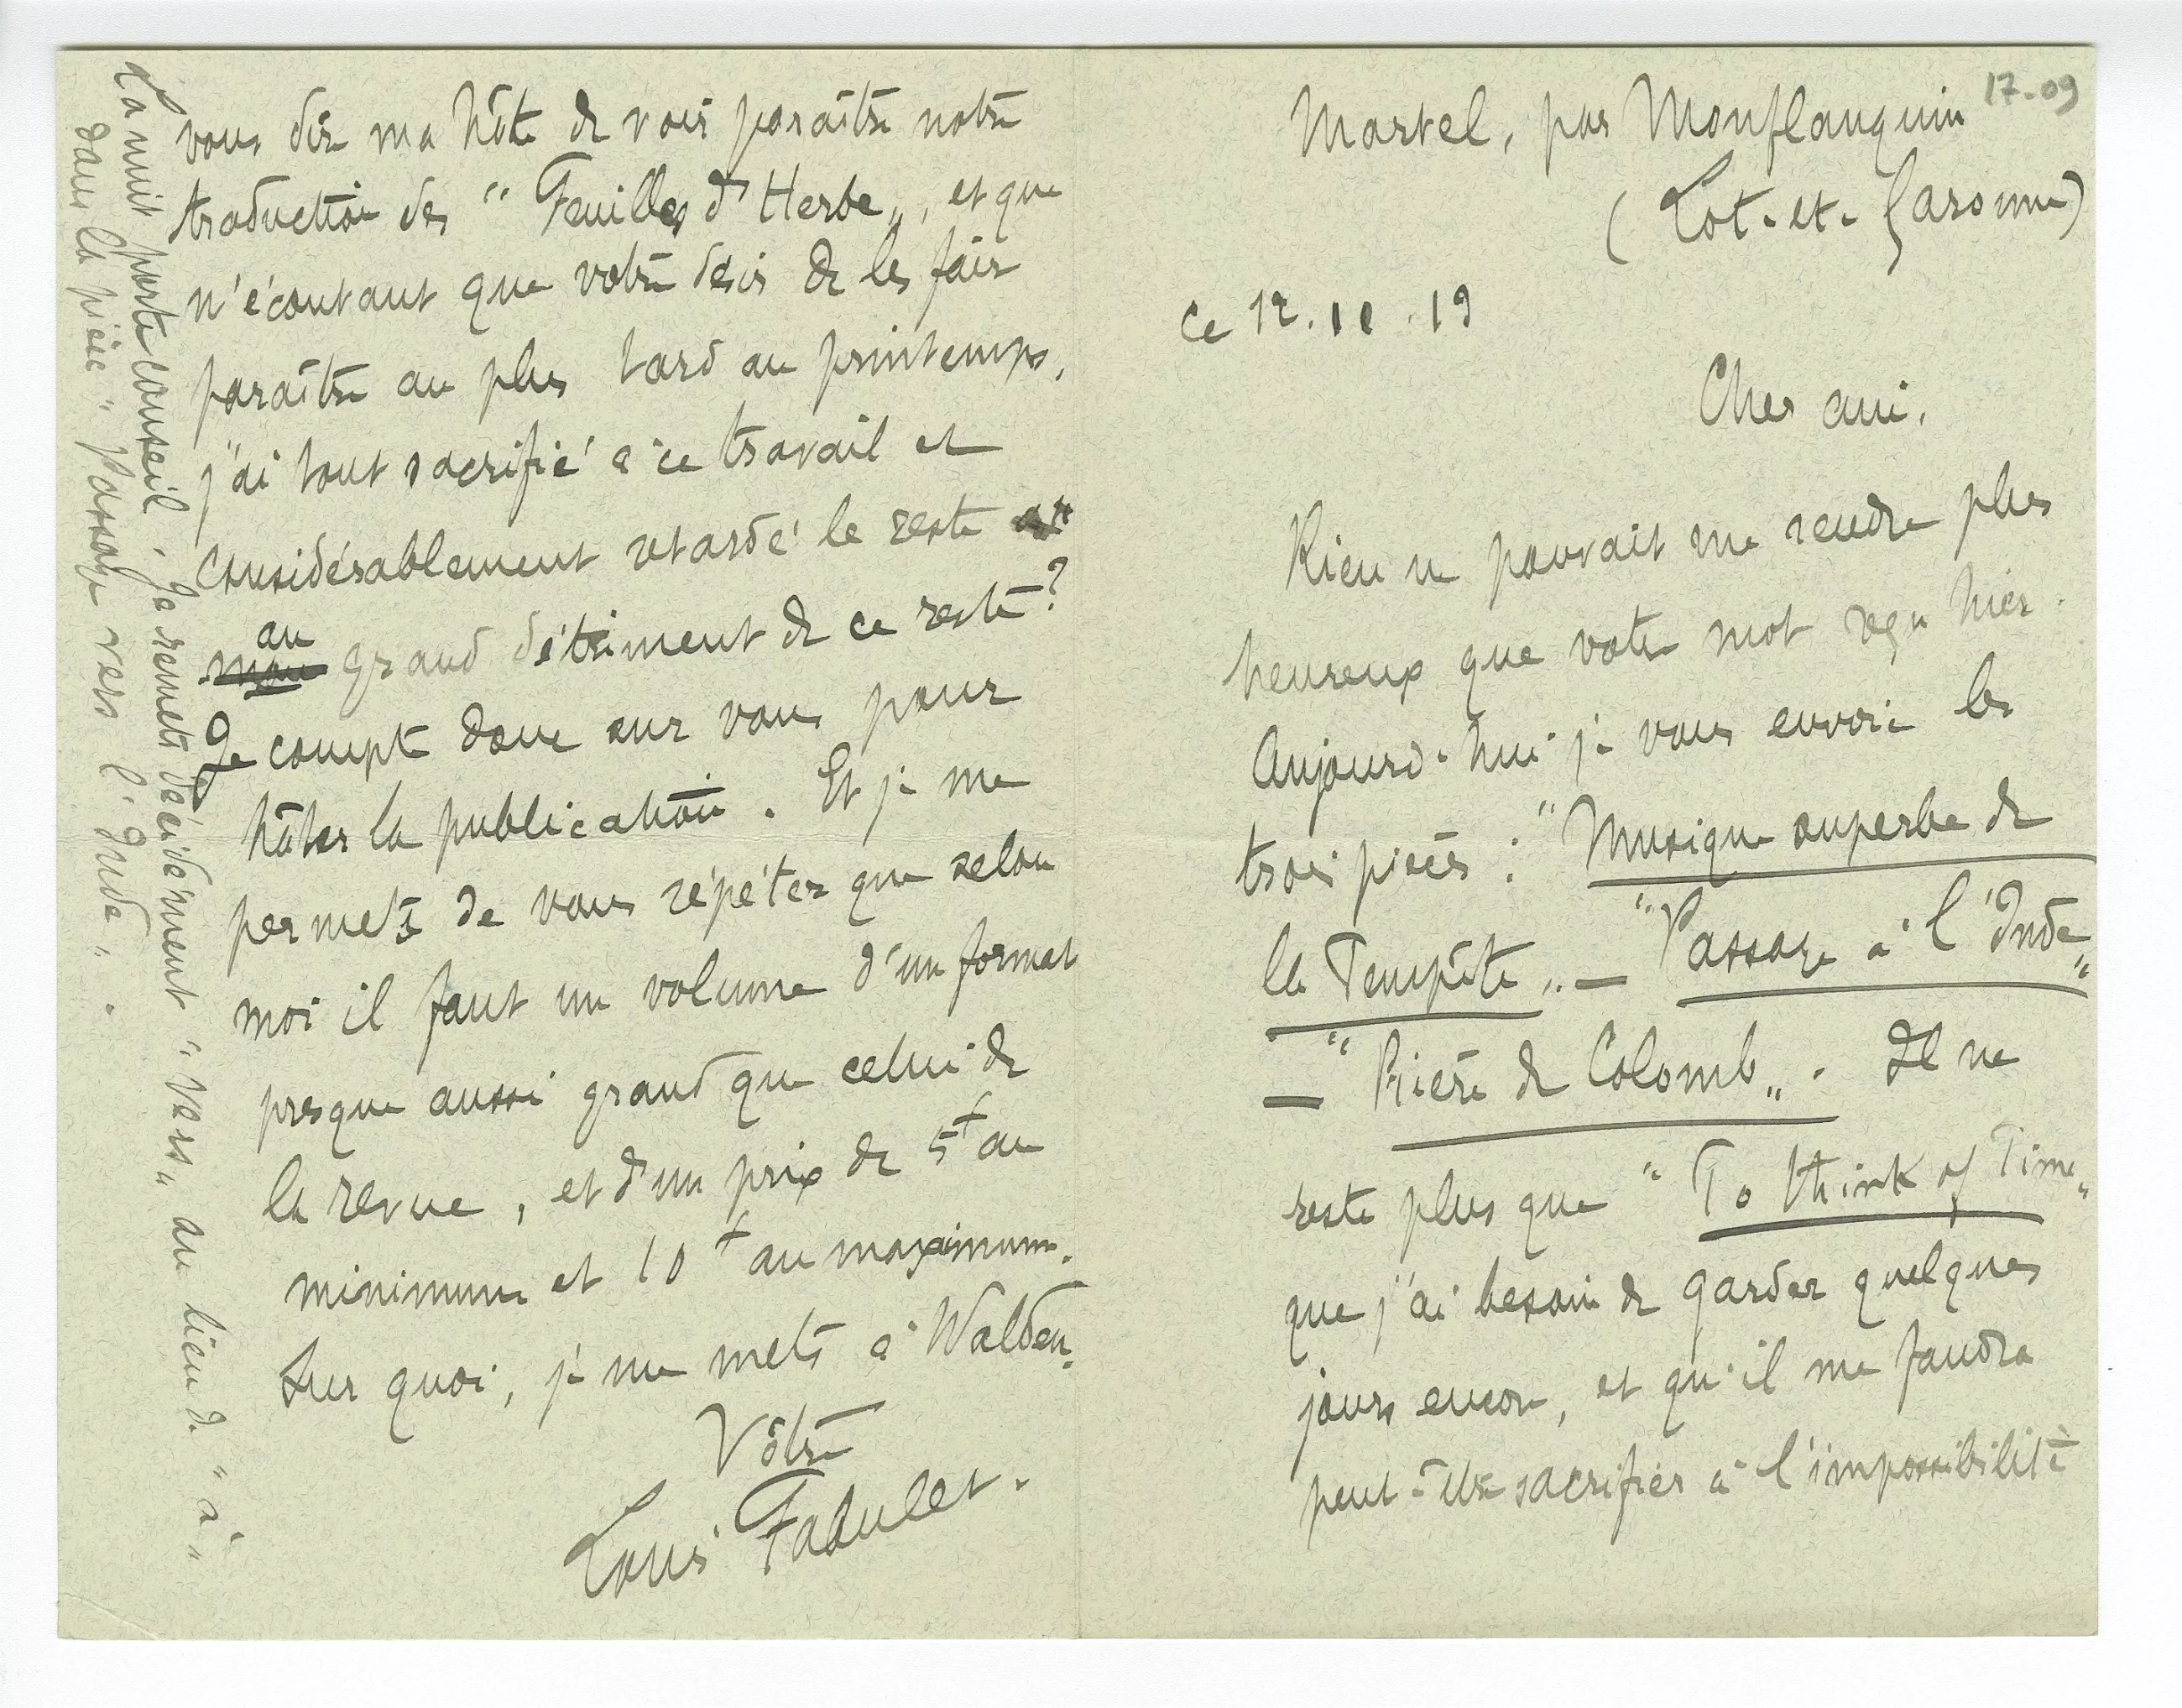 17-09
Martel, par Monflanquin
(Lot-et-Garonne)
ce 12.11.19
Cher ami,
Rien ne pouvait me rendre plus
heureux que votre mot reçu hier.
Aujourd'hui je vous envoie les
trois pièces : "Musique superbe de
la Tempête„ — "Passage à l'Inde„
— "Prière de Colomb„. Il ne
reste plus que "To think of Time„
que j'ai besoin de garder quelques
jours encore, et qu'il me faudra
peut-être sacrifier à l'impossibilité
vous dire ma hâte de voir paraître notre
traduction des "Feuilles d'Herbe„, et que
n'écoutant que votre désir de les faire
paraître au plus tard au printemps,
j'ai tout sacrifié à ce travail et
considérablement retardé le reste
au grand détriment de ce reste?
Je compte donc sur vous pour
hâter la publication. Et je me
permets de vous répéter que selon
moi il faut un volume d'un format
presque aussi grand que celui de
la revue, et d'un prix de 5f au
minimum et 10f au maximum.
Sur quoi, je me mets à Walden.
Vôtre
Louis Fabulet.
La nuit porte conseil. Je remets décidément "vers„ au lieu de "à„
dans la pièce "Passage vers l'Inde„.